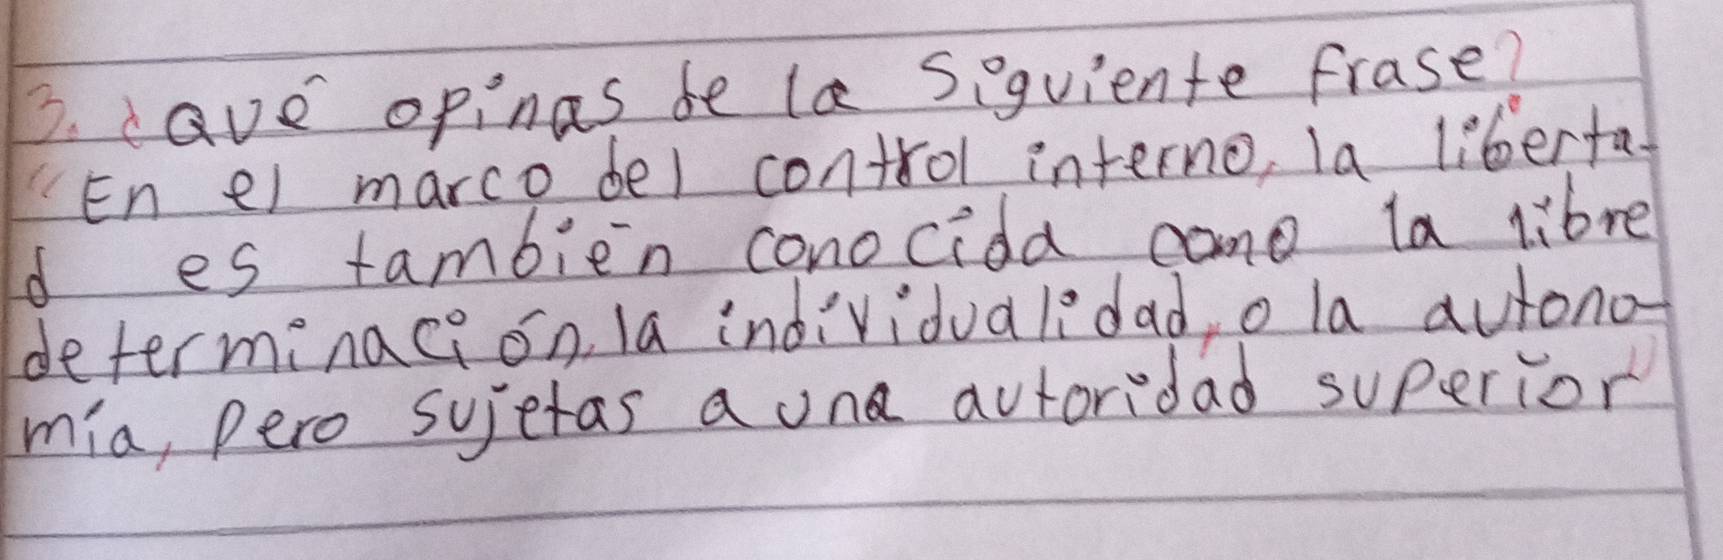 3. ¿Qué opinas de la siguiente frase?
"En el marco del control interno, la liberta-
d es también conocida como la libre
determinación, la individualidad, o la autono-
mía, pero sujetas a una autoridad superior"